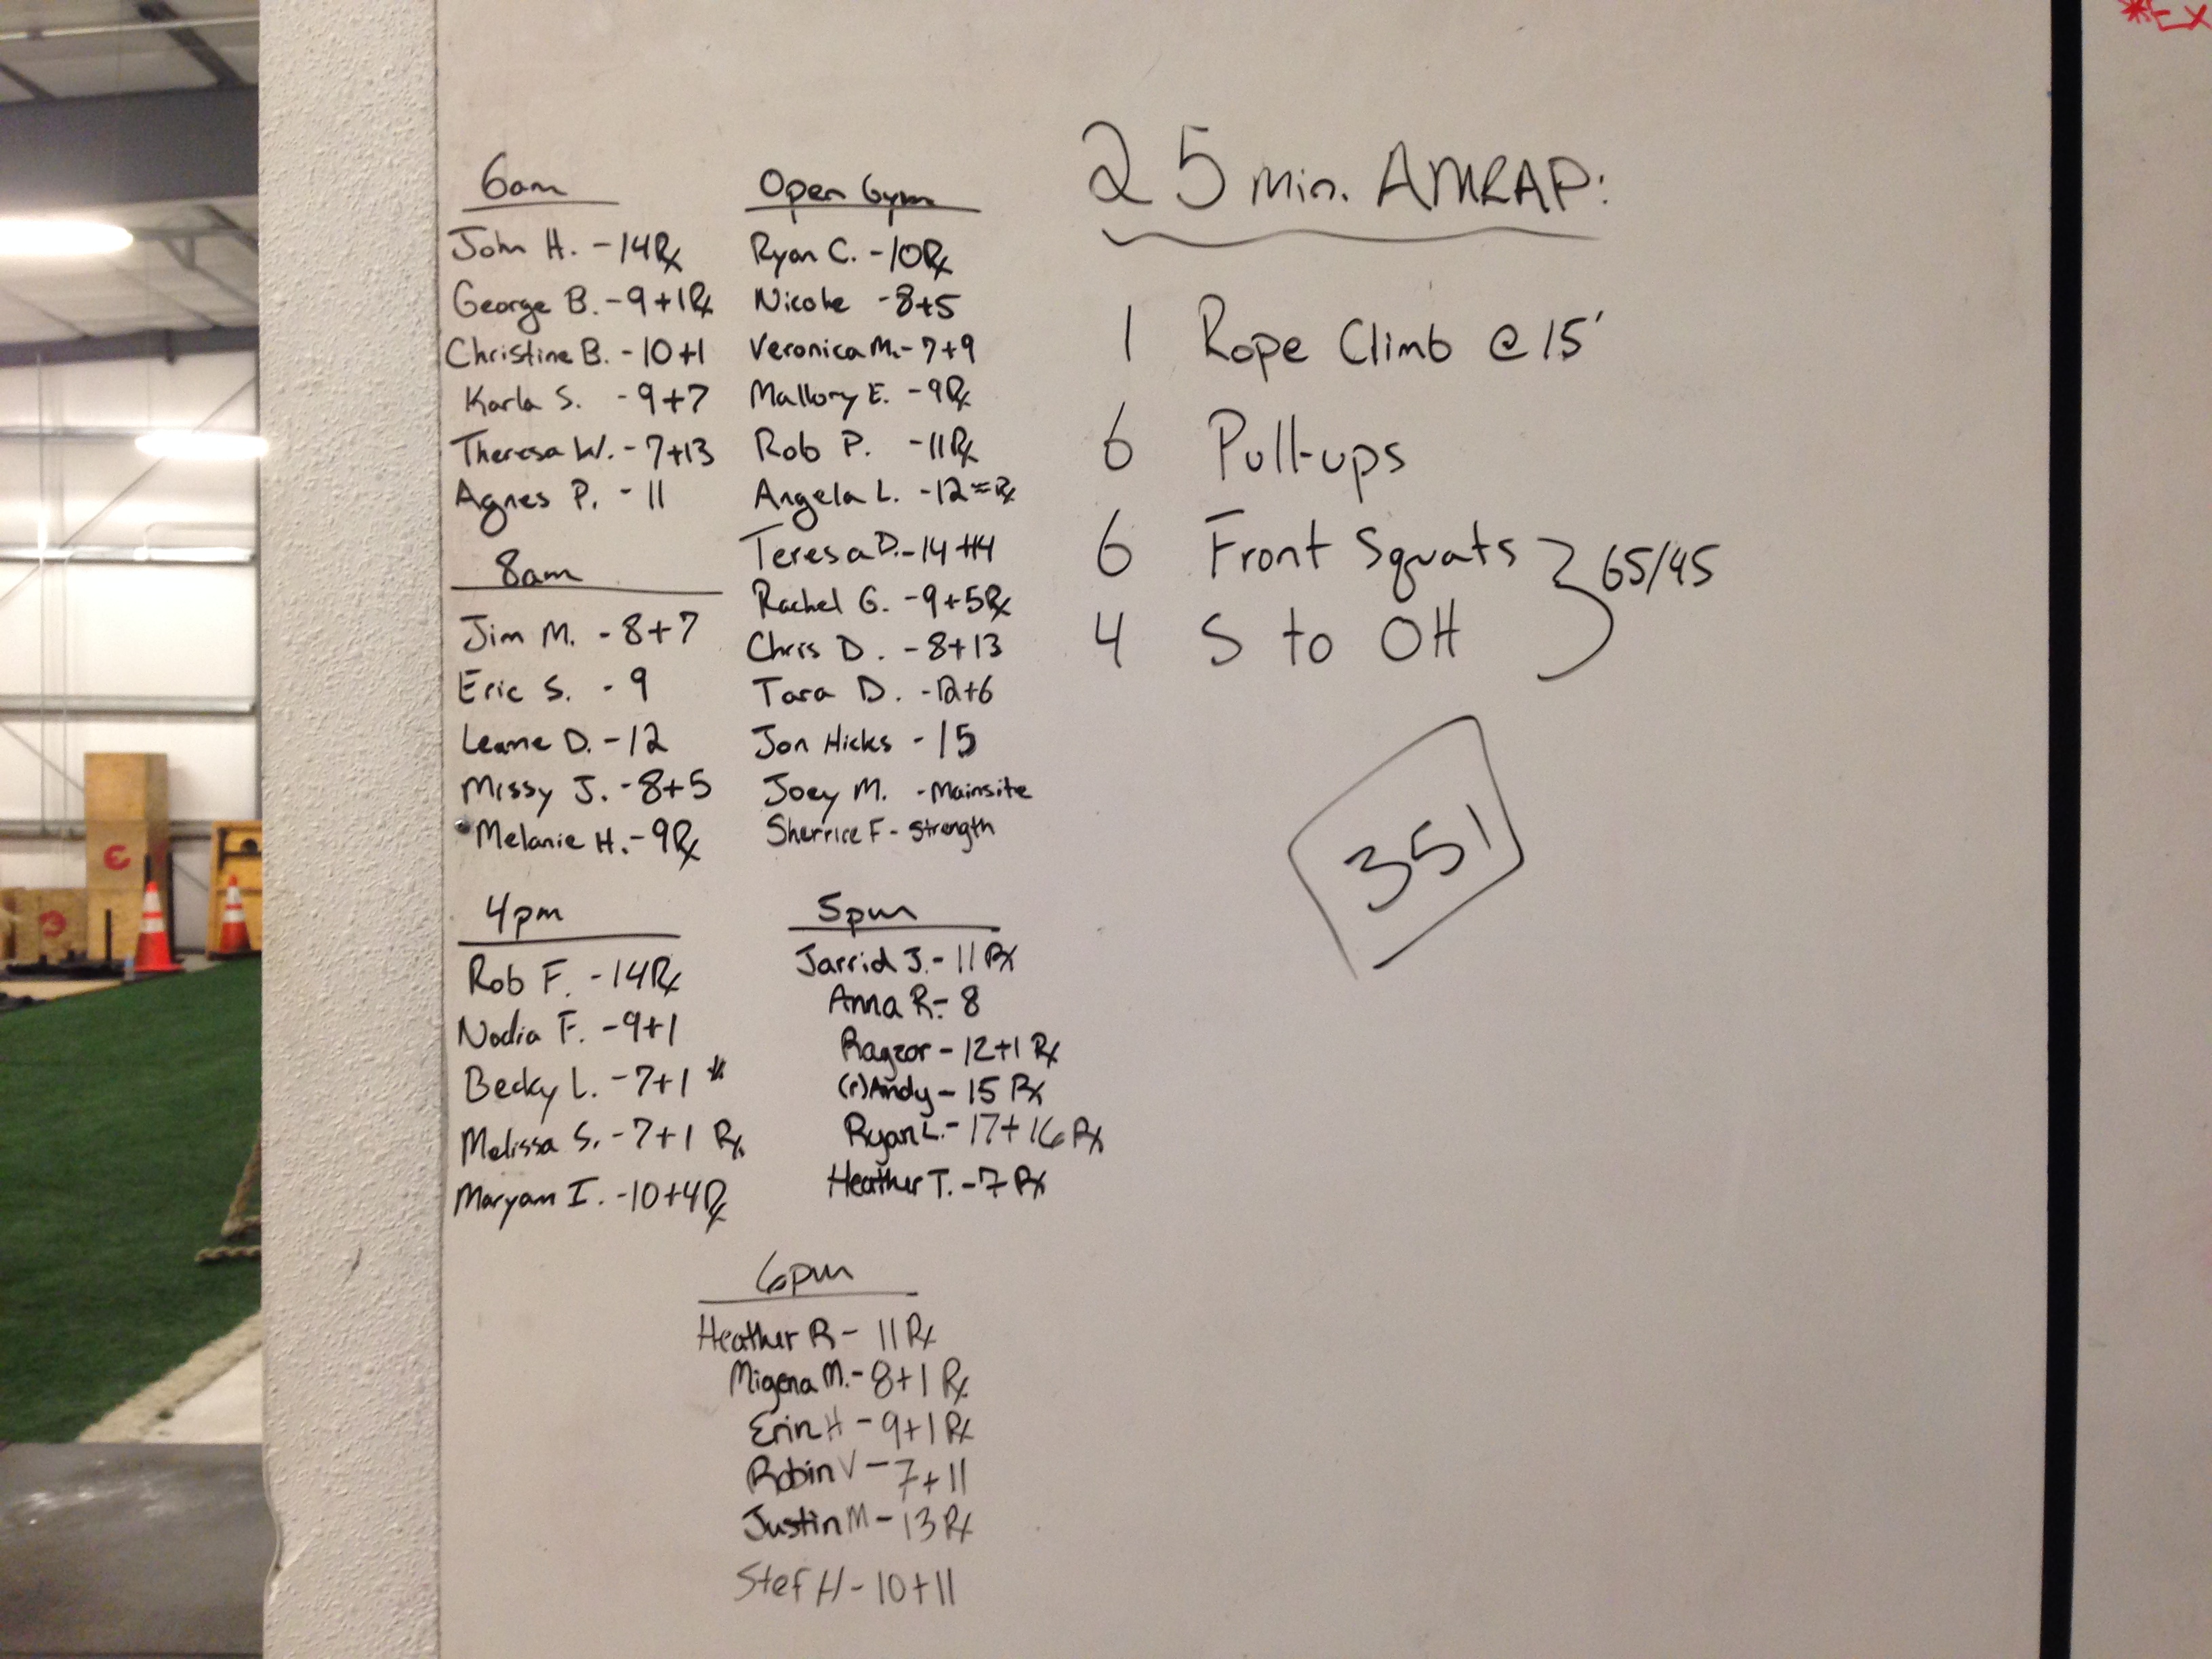 6am
John H. - 14 Rx
George B. - 9+1 Rx
Christine B. - 10+1
Karla S. - 9+7
Theresa W. - 7+13
Agnes P. - 11
8am
Jim M. - 8+7
Eric S. - 9
Leanne D. - 12
Missy J. - 8+5
Melanie H. - 9 Rx
4pm
Rob F. - 14 Rx
Nadia F. - 9+1
Becky L. - 7+1 *
Melissa S. - 7+1 Rx
Maryam I. - 10+4 Rx
Open Gym
Ryan C. - 10 Rx
Nicole - 8+5
Veronica M. - 7+9
Mallory E. - 9 Rx
Rob P. - 11 Rx
Angela L. - 12 ≈ Rx
Teresa D. - 14+14
Rachel G. - 9+5 Rx
Chris D. - 8+13
Tara D. - 12+6
Jon Hicks - 15
Joey M. - Mainsite
Sherrice F - Strength
5pm
Jarrid J. - 11 Rx
Anna R - 8
Ragzor - 12+1 Rx
(r)Andy - 15 Rx
Ryan L. - 17+16 Rx
Heather T. - 7 Rx
6pm
Heather R - 11 Rx
Migena M. - 8+1 Rx
Erin H - 9+1 Rx
Robin V - 7+11
Justin M - 13 Rx
Stef H - 10+11
25 min. AMRAP:
1 Rope Climb @ 15'
6 Pull-ups
6 Front Squats
4 S to OH
65/45
351
*Ex